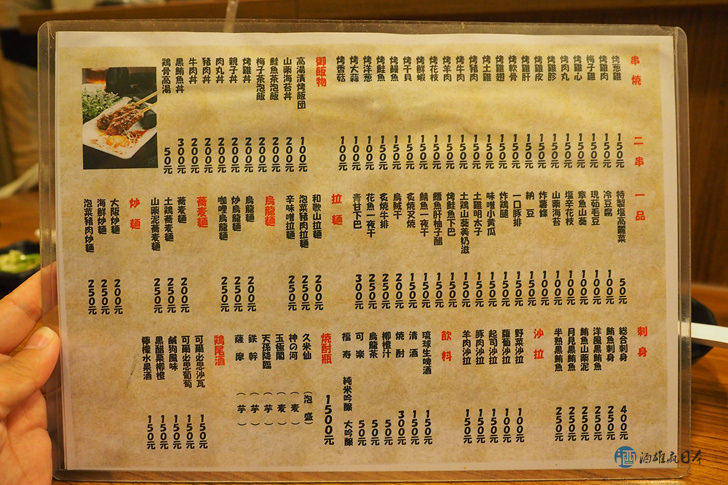 串燒 二串
烤蔥雞 150元
烤雞肉 150元
梅子雞 150元
烤雞心 150元
烤肉丸 150元
烤雞胗 150元
烤雞皮 150元
烤雞肝 150元
烤軟骨 150元
烤雞翅 150元
烤土雞 150元
烤豬肉 150元
烤牛肉 150元
烤羊肉 150元
烤花枝 150元
烤鮮蝦 150元
烤干貝 150元
烤鰻魚 150元
烤鮭魚 150元
烤洋蔥 100元
烤大蒜 100元
烤香菇 100元
御飯物
高湯漬烤飯団 100元
山藥海苔丼 200元
鮭魚茶泡飯 200元
梅子茶泡飯 200元
烤雞丼 200元
親子丼 200元
肉丸丼 200元
豬肉丼 200元
牛肉丼 200元
黑鮪魚丼 300元
鶏骨高湯 50元
一品
特製塩高麗菜 50元
冷豆腐 100元
現茹毛豆 100元
章魚山葵 100元
塩辛花枝 100元
山藥海苔 100元
炸薯條 100元
納豆 100元
一口豚排 150元
炸雞腿 150元
味噌小黃瓜 100元
土雞明太子 150元
土雞山葵美奶滋 150元
烤鮭魚下巴 150元
鱈魚肝柚子醋 150元
鯖魚一夜干 150元
炙燒叉燒 150元
烏賊干 200元
炙燒牛排 250元
花魚一夜干 250元
青甘下巴 300元
拉麵
和歌山拉麵 200元
泡菜豬肉拉麵 250元
辛味噌拉麵 250元
烏龍麵
烏龍麵 200元
炒烏龍麵 250元
咖哩烏龍麵 250元
蕎麥麵
蕎麥麵 200元
土鶏蕎麥麵 250元
山藥泥蕎麥麵 250元
炒麵
大阪炒麵 200元
海鮮炒麵 250元
泡菜豬肉炒麵 250元
刺身
綜合刺身 400元
鮪魚刺身 250元
洋風黑鮪魚 250元
鮪魚山藥泥 250元
月見黑鮪魚 250元
半熟黑鮪魚 250元
沙拉
野菜沙拉 100元
蘿蔔沙拉 100元
起司沙拉 150元
豚肉沙拉 150元
羊肉沙拉 150元
飲料
琉球生啤酒 150元
清酒 150元
燒酎 300元
柳橙汁 50元
烏龍茶 50元
可樂 50元
福寿 純米吟釀 大吟釀
燒酎瓶 1500元
久米仙 (泡盛)
神の河 (麦)
玉極閣 (麦)
天孫降臨 (芋)
鉄幹 (芋)
薩摩 (芋)
鶏尾酒
可爾必思沙瓦 150元
可爾必思葡萄 150元
鹹狗風味 150元
黑醋栗柳橙 150元
檸檬水果酒 150元
酒雄瘋日本